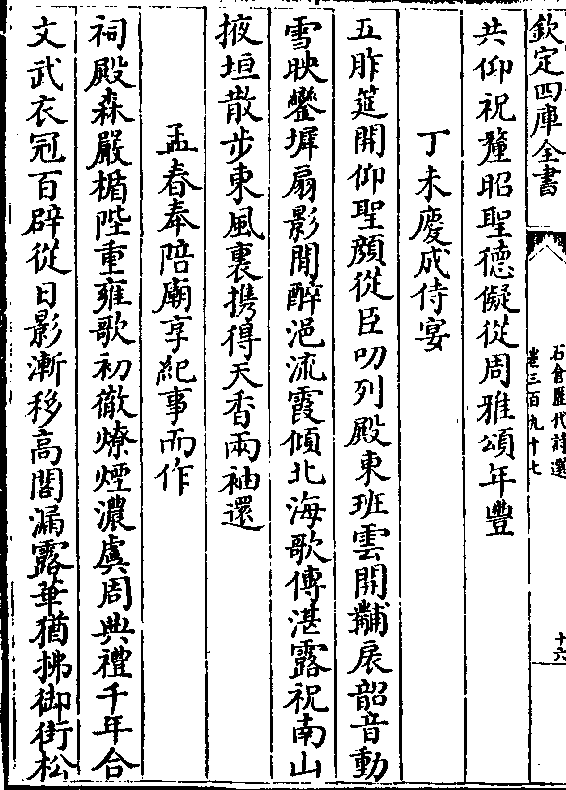 欽定四庫全書
石倉歷代詩選
卷三百九十七
十六
共仰祝釐昭聖德儗從周雅頌年豐
丁未慶成侍宴
五胙筵開仰聖顔從臣叨列殿東班雲開黼扆韶音動
雪映鑾墀扇影閒醉浥流霞傾北海歌傳湛露祝南山
掖垣散步東風裏携得天香兩袖還
孟春奉陪廟享紀事而作
祠殿森嚴楯陛重雍歌初徹燎煙濃虞周典禮千年合
文武衣冠百辟從日影漸移高閣漏露華猶拂御街松